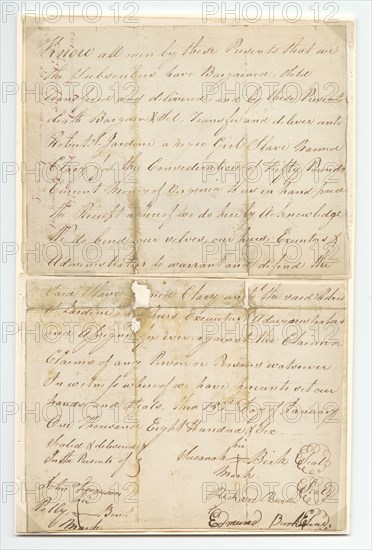 Know all men by these Presents that we
The Subscribers have Bargained Sold
and delivered and by these Presents
doth Bargain & Sel Transfer and deliver unto
Robert Jardone a negro Girl Slave Named
Clary for the Consideration of Fifty Pounds
Current Money of Virginia to us in hand paid
The Receipt whereof we do here by Acknowledge
We do bend our selves, our heirs Executors &
Administrators to warrant and defend the
Said Slave Clary unto the said Robert
Jardone heirs Executors Administrators
and Assigns for ever against the Claim or
Claims of any Person or Persons whatsoever
In witness whereof we have hereunto set our
hands and Seals, this 13th day of January
One Thousand Eight Hundred & Six
Sealed & delivered
In the Presents of
his
Susanah Birk Seal
Mark
Richard Burk Seal
Edmund Burk Seal
John
his
Mark
PHOTO 12